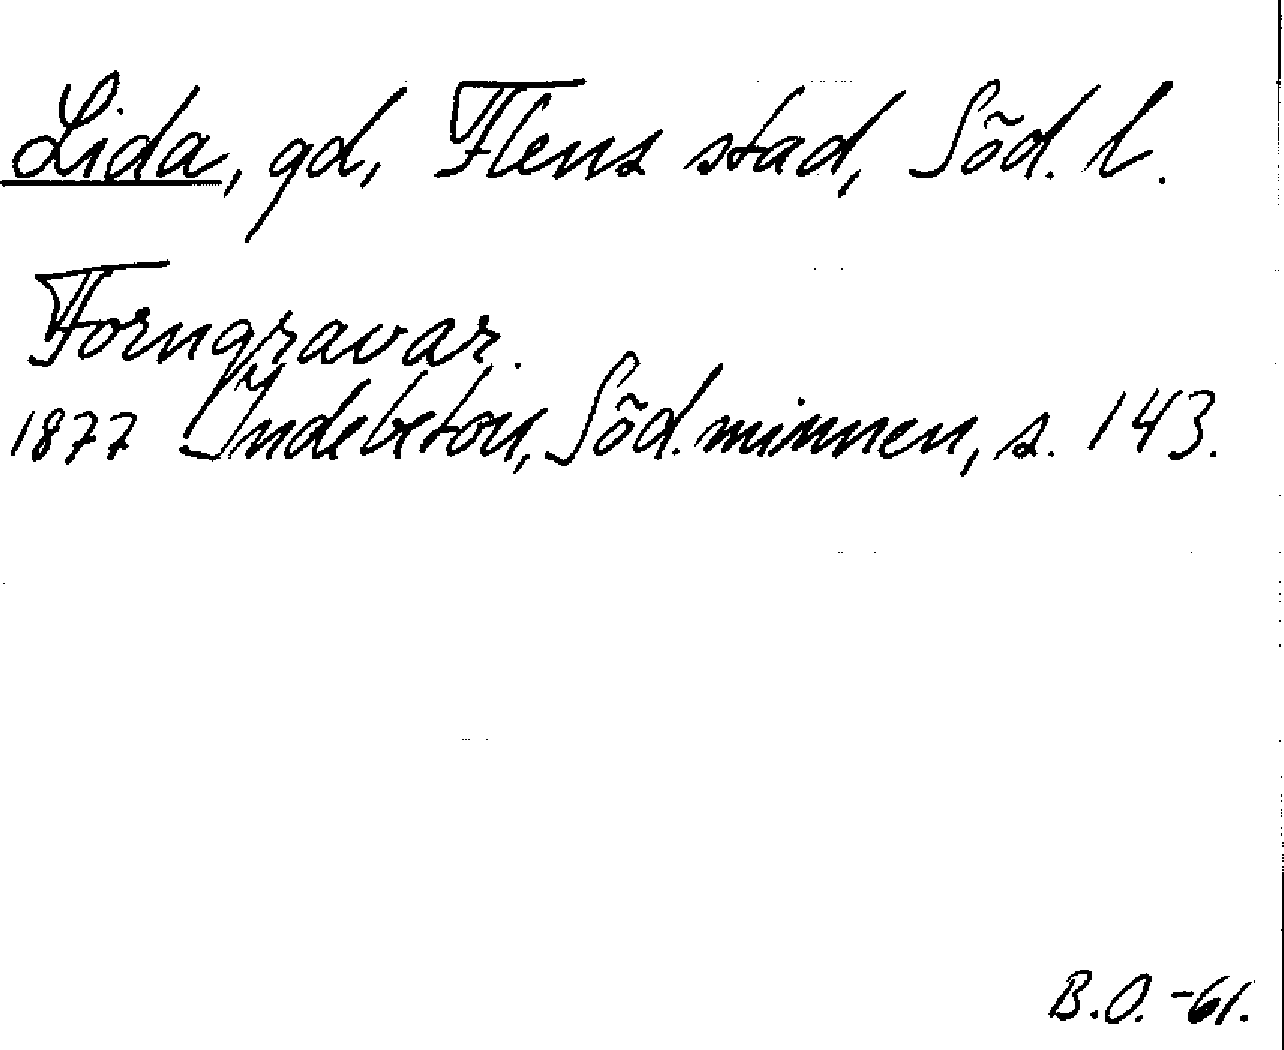 Lida, gd, Flens stad, Söd. l.
Forngravar.
1877 Indebetou, Söd. minnen, s. 143.
B.O. -61.